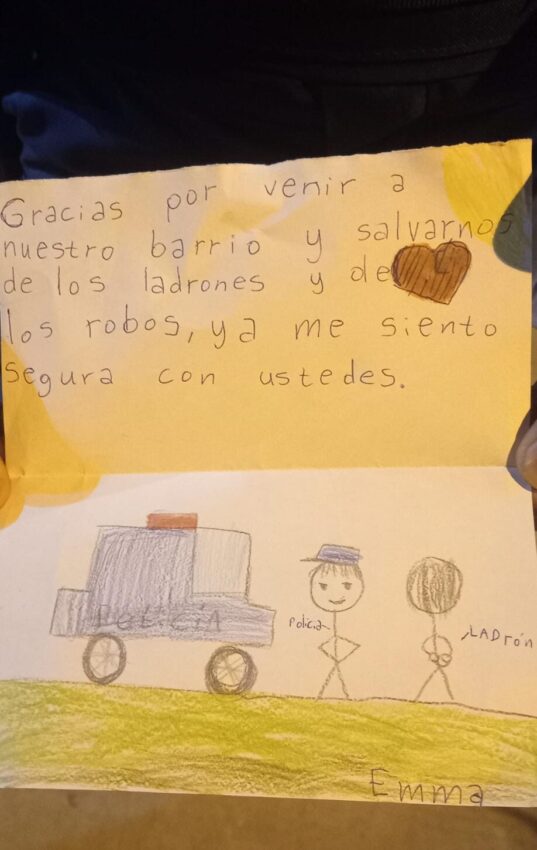 Gracias por venir a
nuestro barrio y salvarnos
de los ladrones y de
los robos, ya me siento
segura con ustedes.
POLICÍA
Policia
LADrón
Emma